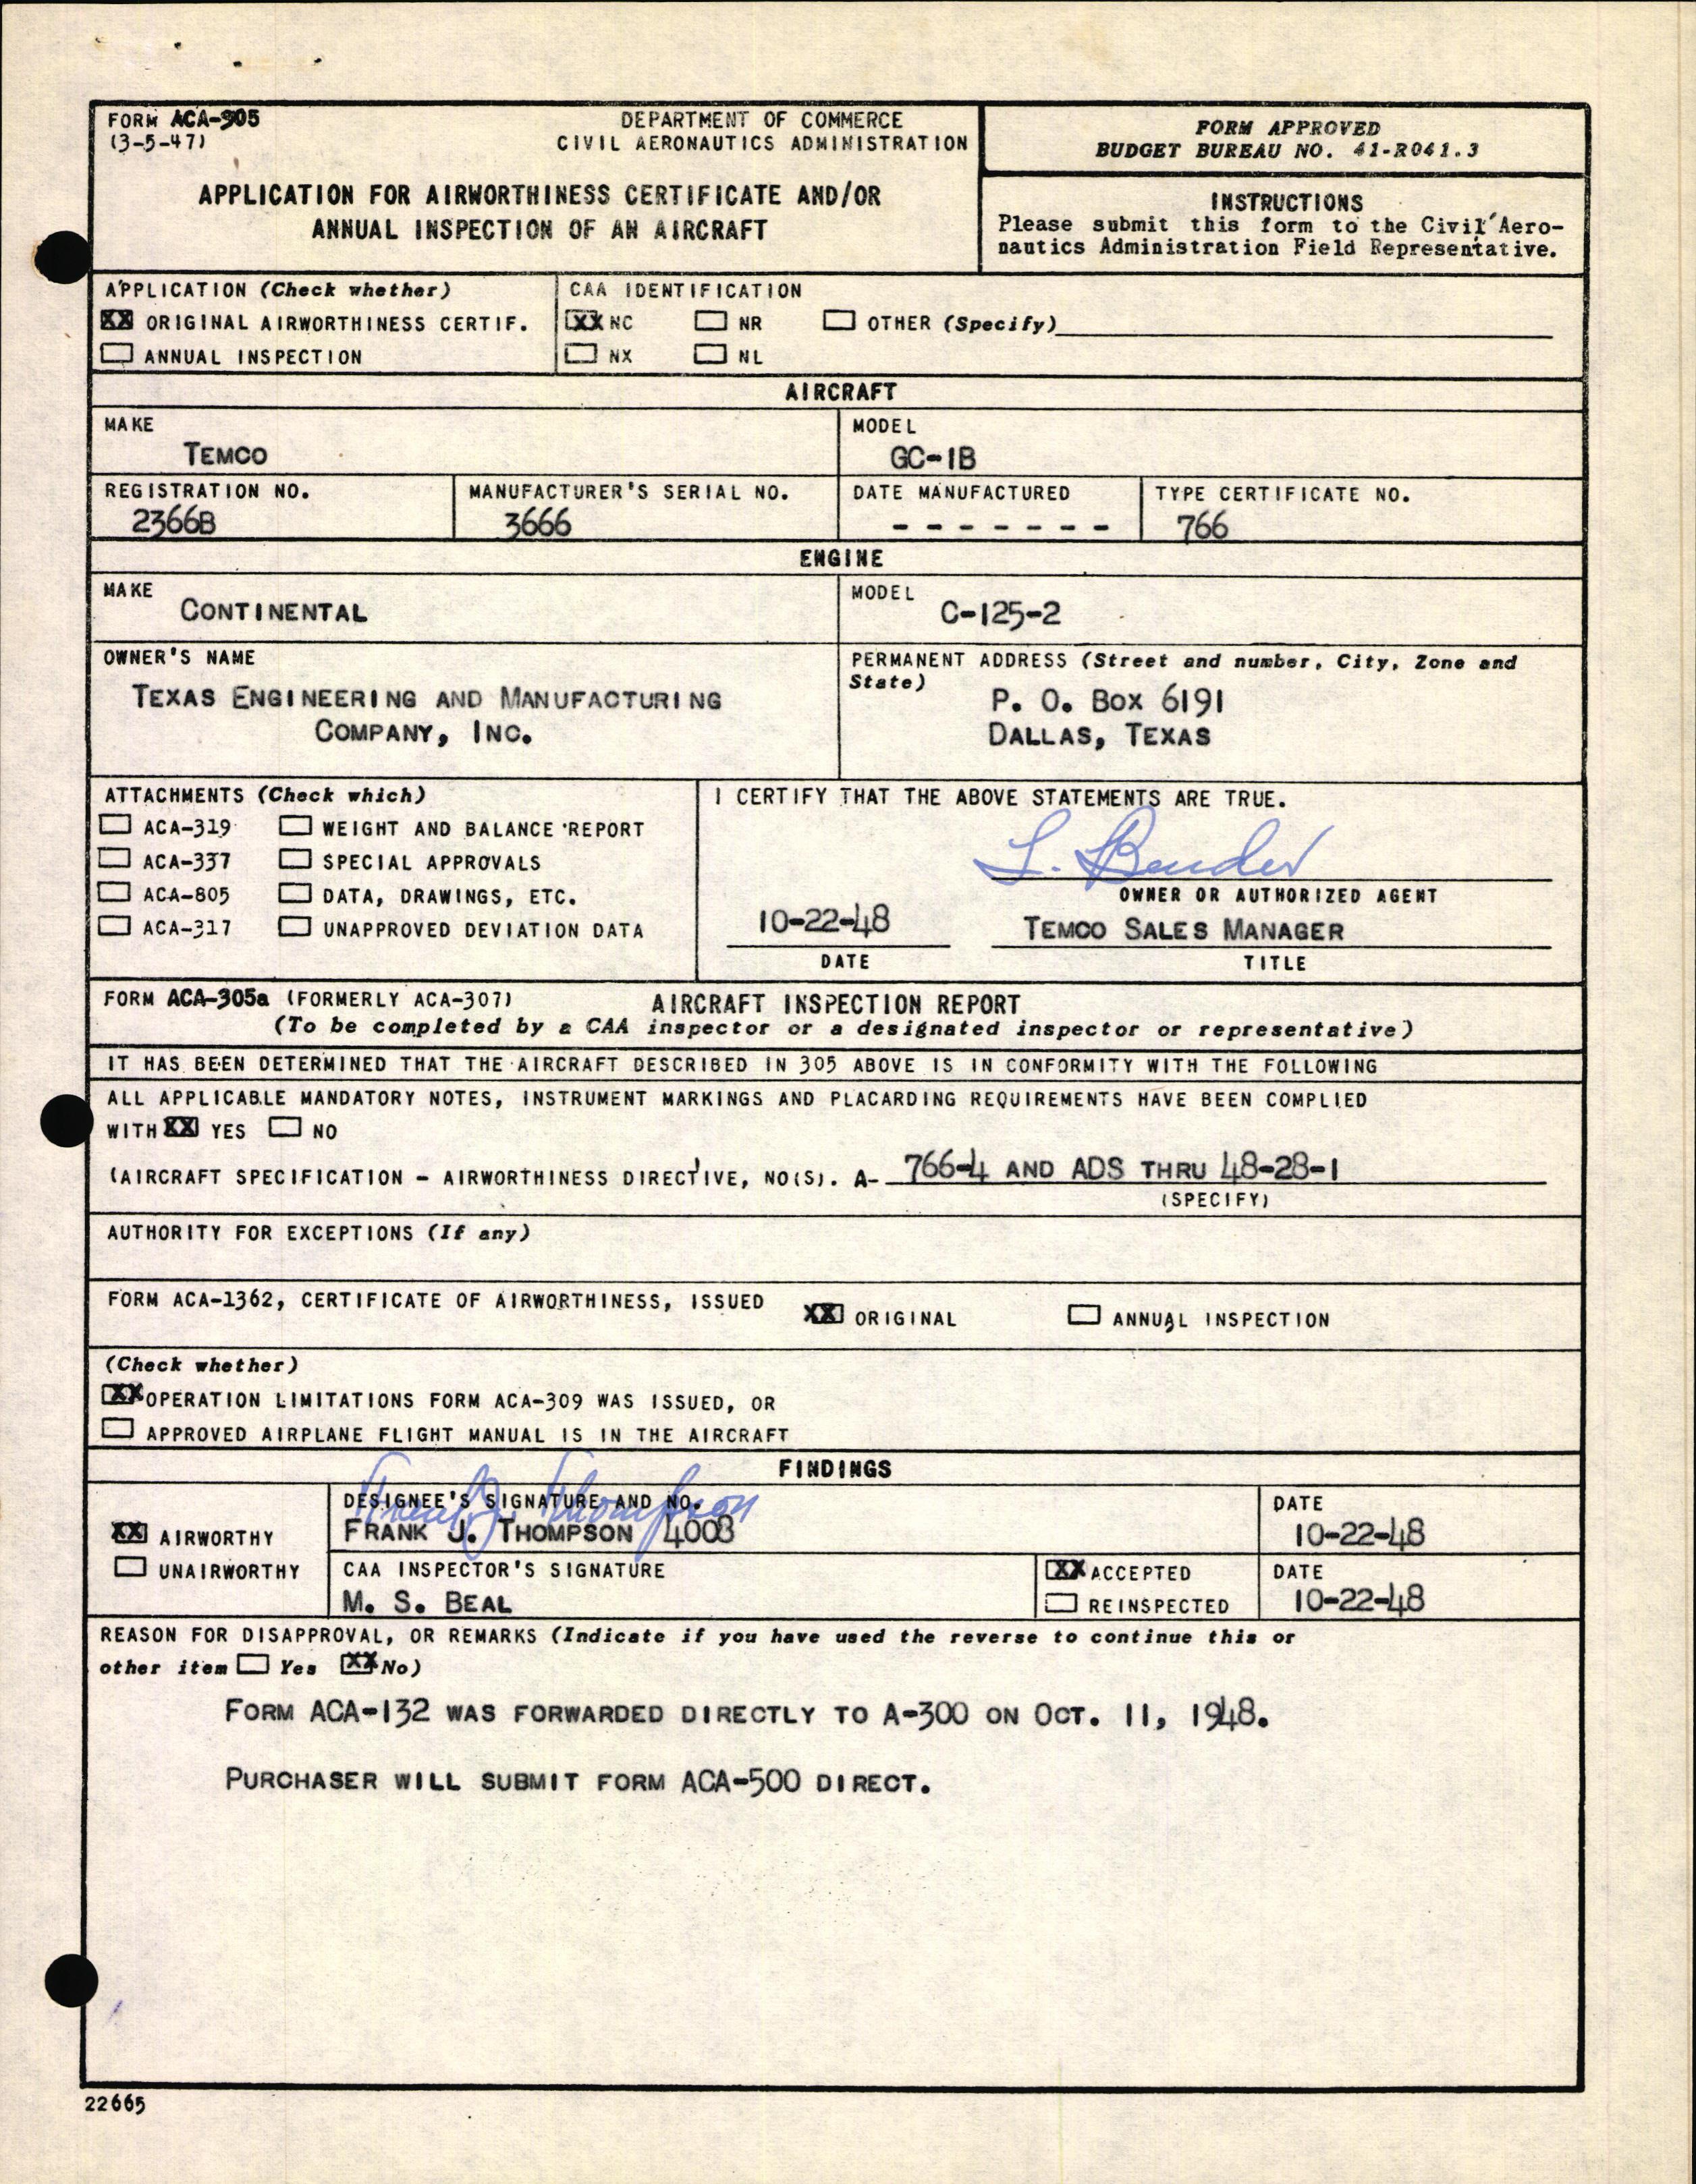 FORM ACA-305
(3-5-47)
DEPARTMENT OF COMMERCE
CIVIL AERONAUTICS ADMINISTRATION
APPLICATION FOR AIRWORTHINESS CERTIFICATE AND/OR
ANNUAL INSPECTION OF AN AIRCRAFT
FORM APPROVED
BUDGET BUREAU NO. 41-R041.3
INSTRUCTIONS
Please submit this form to the Civil Aero-
nautics Administration Field Representative.
APPLICATION (Check whether)
XX ORIGINAL AIRWORTHINESS CERTIF.
ANNUAL INSPECTION
CAA IDENTIFICATION
XX NC NR OTHER (Specify)
NX NL
AIRCRAFT
MAKE
TEMCO
MODEL
GC-1B
REGISTRATION NO.
2366B
MANUFACTURER'S SERIAL NO.
3666
DATE MANUFACTURED
- - - - - - -
TYPE CERTIFICATE NO.
766
ENGINE
MAKE
CONTINENTAL
MODEL
C-125-2
OWNER'S NAME
TEXAS ENGINEERING AND MANUFACTURING
COMPANY, INC.
PERMANENT ADDRESS (Street and number, City, Zone and
State)
P. O. BOX 6191
DALLAS, TEXAS
ATTACHMENTS (Check which)
ACA-319 WEIGHT AND BALANCE REPORT
ACA-337 SPECIAL APPROVALS
ACA-805 DATA, DRAWINGS, ETC.
ACA-317 UNAPPROVED DEVIATION DATA
I CERTIFY THAT THE ABOVE STATEMENTS ARE TRUE.
L. Bender
OWNER OR AUTHORIZED AGENT
10-22-48
DATE
TEMCO SALES MANAGER
TITLE
FORM ACA-305a (FORMERLY ACA-307) AIRCRAFT INSPECTION REPORT
(To be completed by a CAA inspector or a designated inspector or representative)
IT HAS BEEN DETERMINED THAT THE AIRCRAFT DESCRIBED IN 305 ABOVE IS IN CONFORMITY WITH THE FOLLOWING
ALL APPLICABLE MANDATORY NOTES, INSTRUMENT MARKINGS AND PLACARDING REQUIREMENTS HAVE BEEN COMPLIED
WITH XX YES NO
(AIRCRAFT SPECIFICATION - AIRWORTHINESS DIRECTIVE, NO(S). A- 766-4 AND ADS THRU 48-28-1
(SPECIFY)
AUTHORITY FOR EXCEPTIONS (If any)
FORM ACA-1362, CERTIFICATE OF AIRWORTHINESS, ISSUED XX ORIGINAL ANNUAL INSPECTION
(Check whether)
XX OPERATION LIMITATIONS FORM ACA-309 WAS ISSUED, OR
APPROVED AIRPLANE FLIGHT MANUAL IS IN THE AIRCRAFT
FINDINGS
XX AIRWORTHY
UNAIRWORTHY
DESIGNEE'S SIGNATURE AND NO.
Frank J. Thompson
FRANK J. THOMPSON 4008
DATE
10-22-48
CAA INSPECTOR'S SIGNATURE
M. S. BEAL
XX ACCEPTED
REINSPECTED
DATE
10-22-48
REASON FOR DISAPPROVAL, OR REMARKS (Indicate if you have used the reverse to continue this or
other item Yes XX No)
FORM ACA-132 WAS FORWARDED DIRECTLY TO A-300 ON OCT. 11, 1948.
PURCHASER WILL SUBMIT FORM ACA-500 DIRECT.
22665